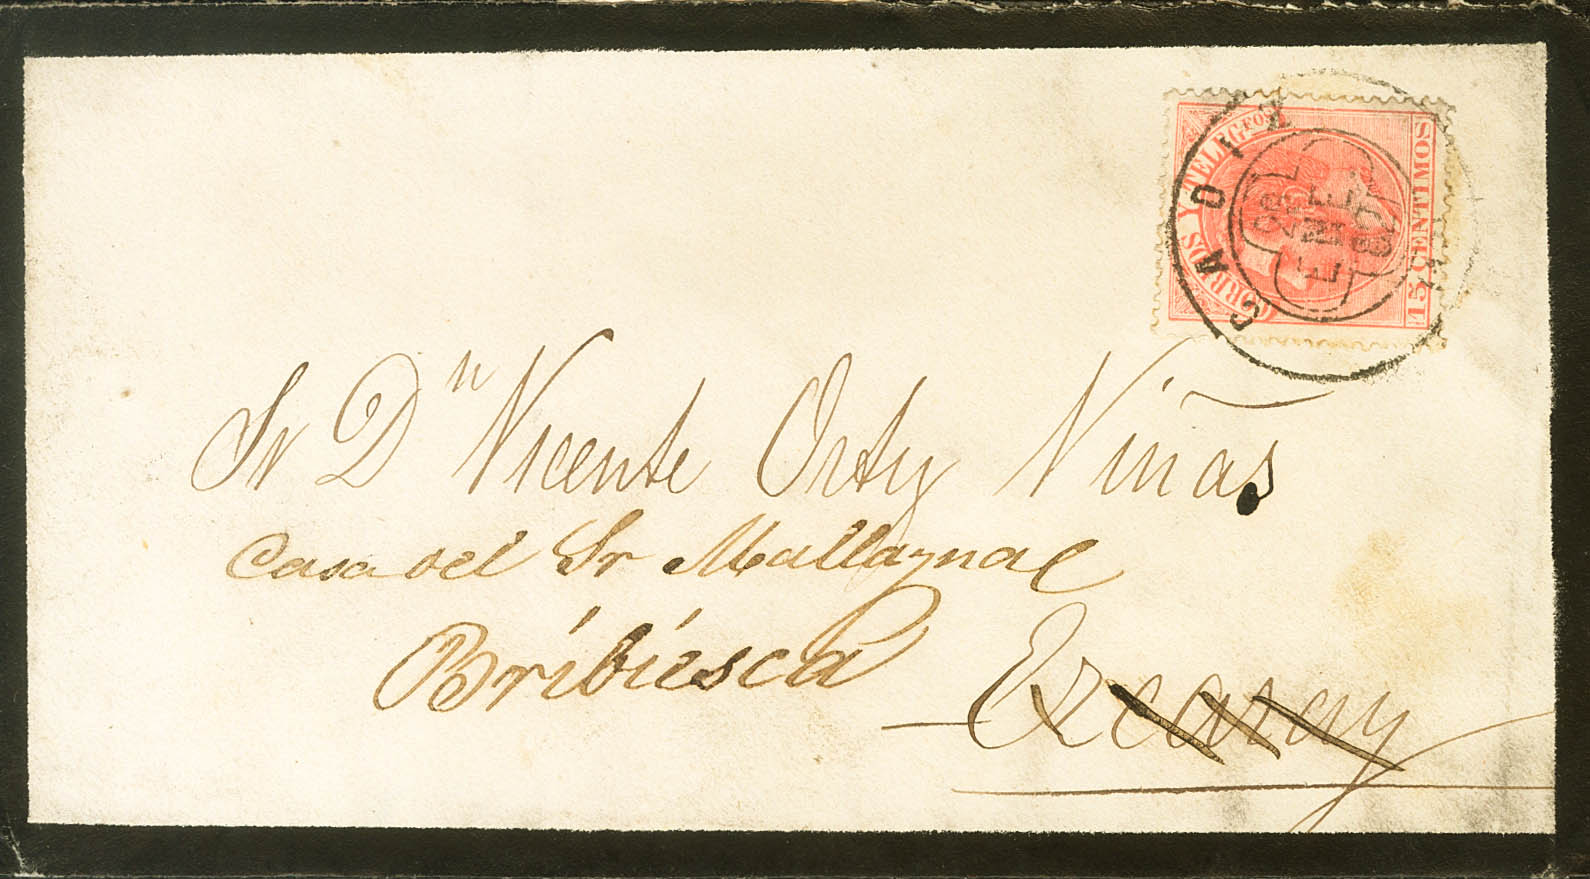 CORREOS Y TELEGFOS
15 CENTIMOS
CADIZ
28
ENE
87
Sr Dn Vicente Ortiz Viñas
Casa del Sr Mallaynal
Bribiesca
Ezcaray